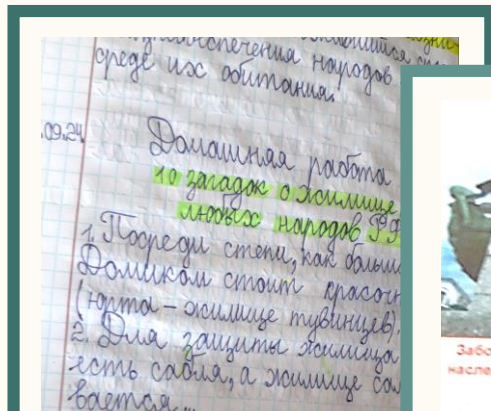 обеспечения народов
среде их обитания.
.09.24
Домашняя работа
10 загадок о жилище
любых народов РФ
1. Посреди степи, как больш
Домиком стоит красочн
(юрта – жилище тувинцев).
2. Для защиты жилища
есть сабля, а жилище
вается...
Забо
насле